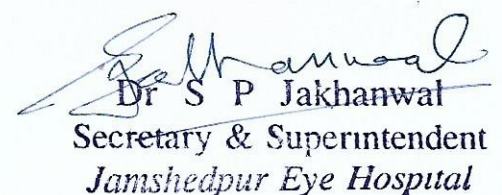 Dr S P Jakhanwal
Secretary & Superintendent
Jamshedpur Eye Hospital